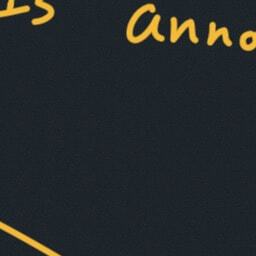 is anno